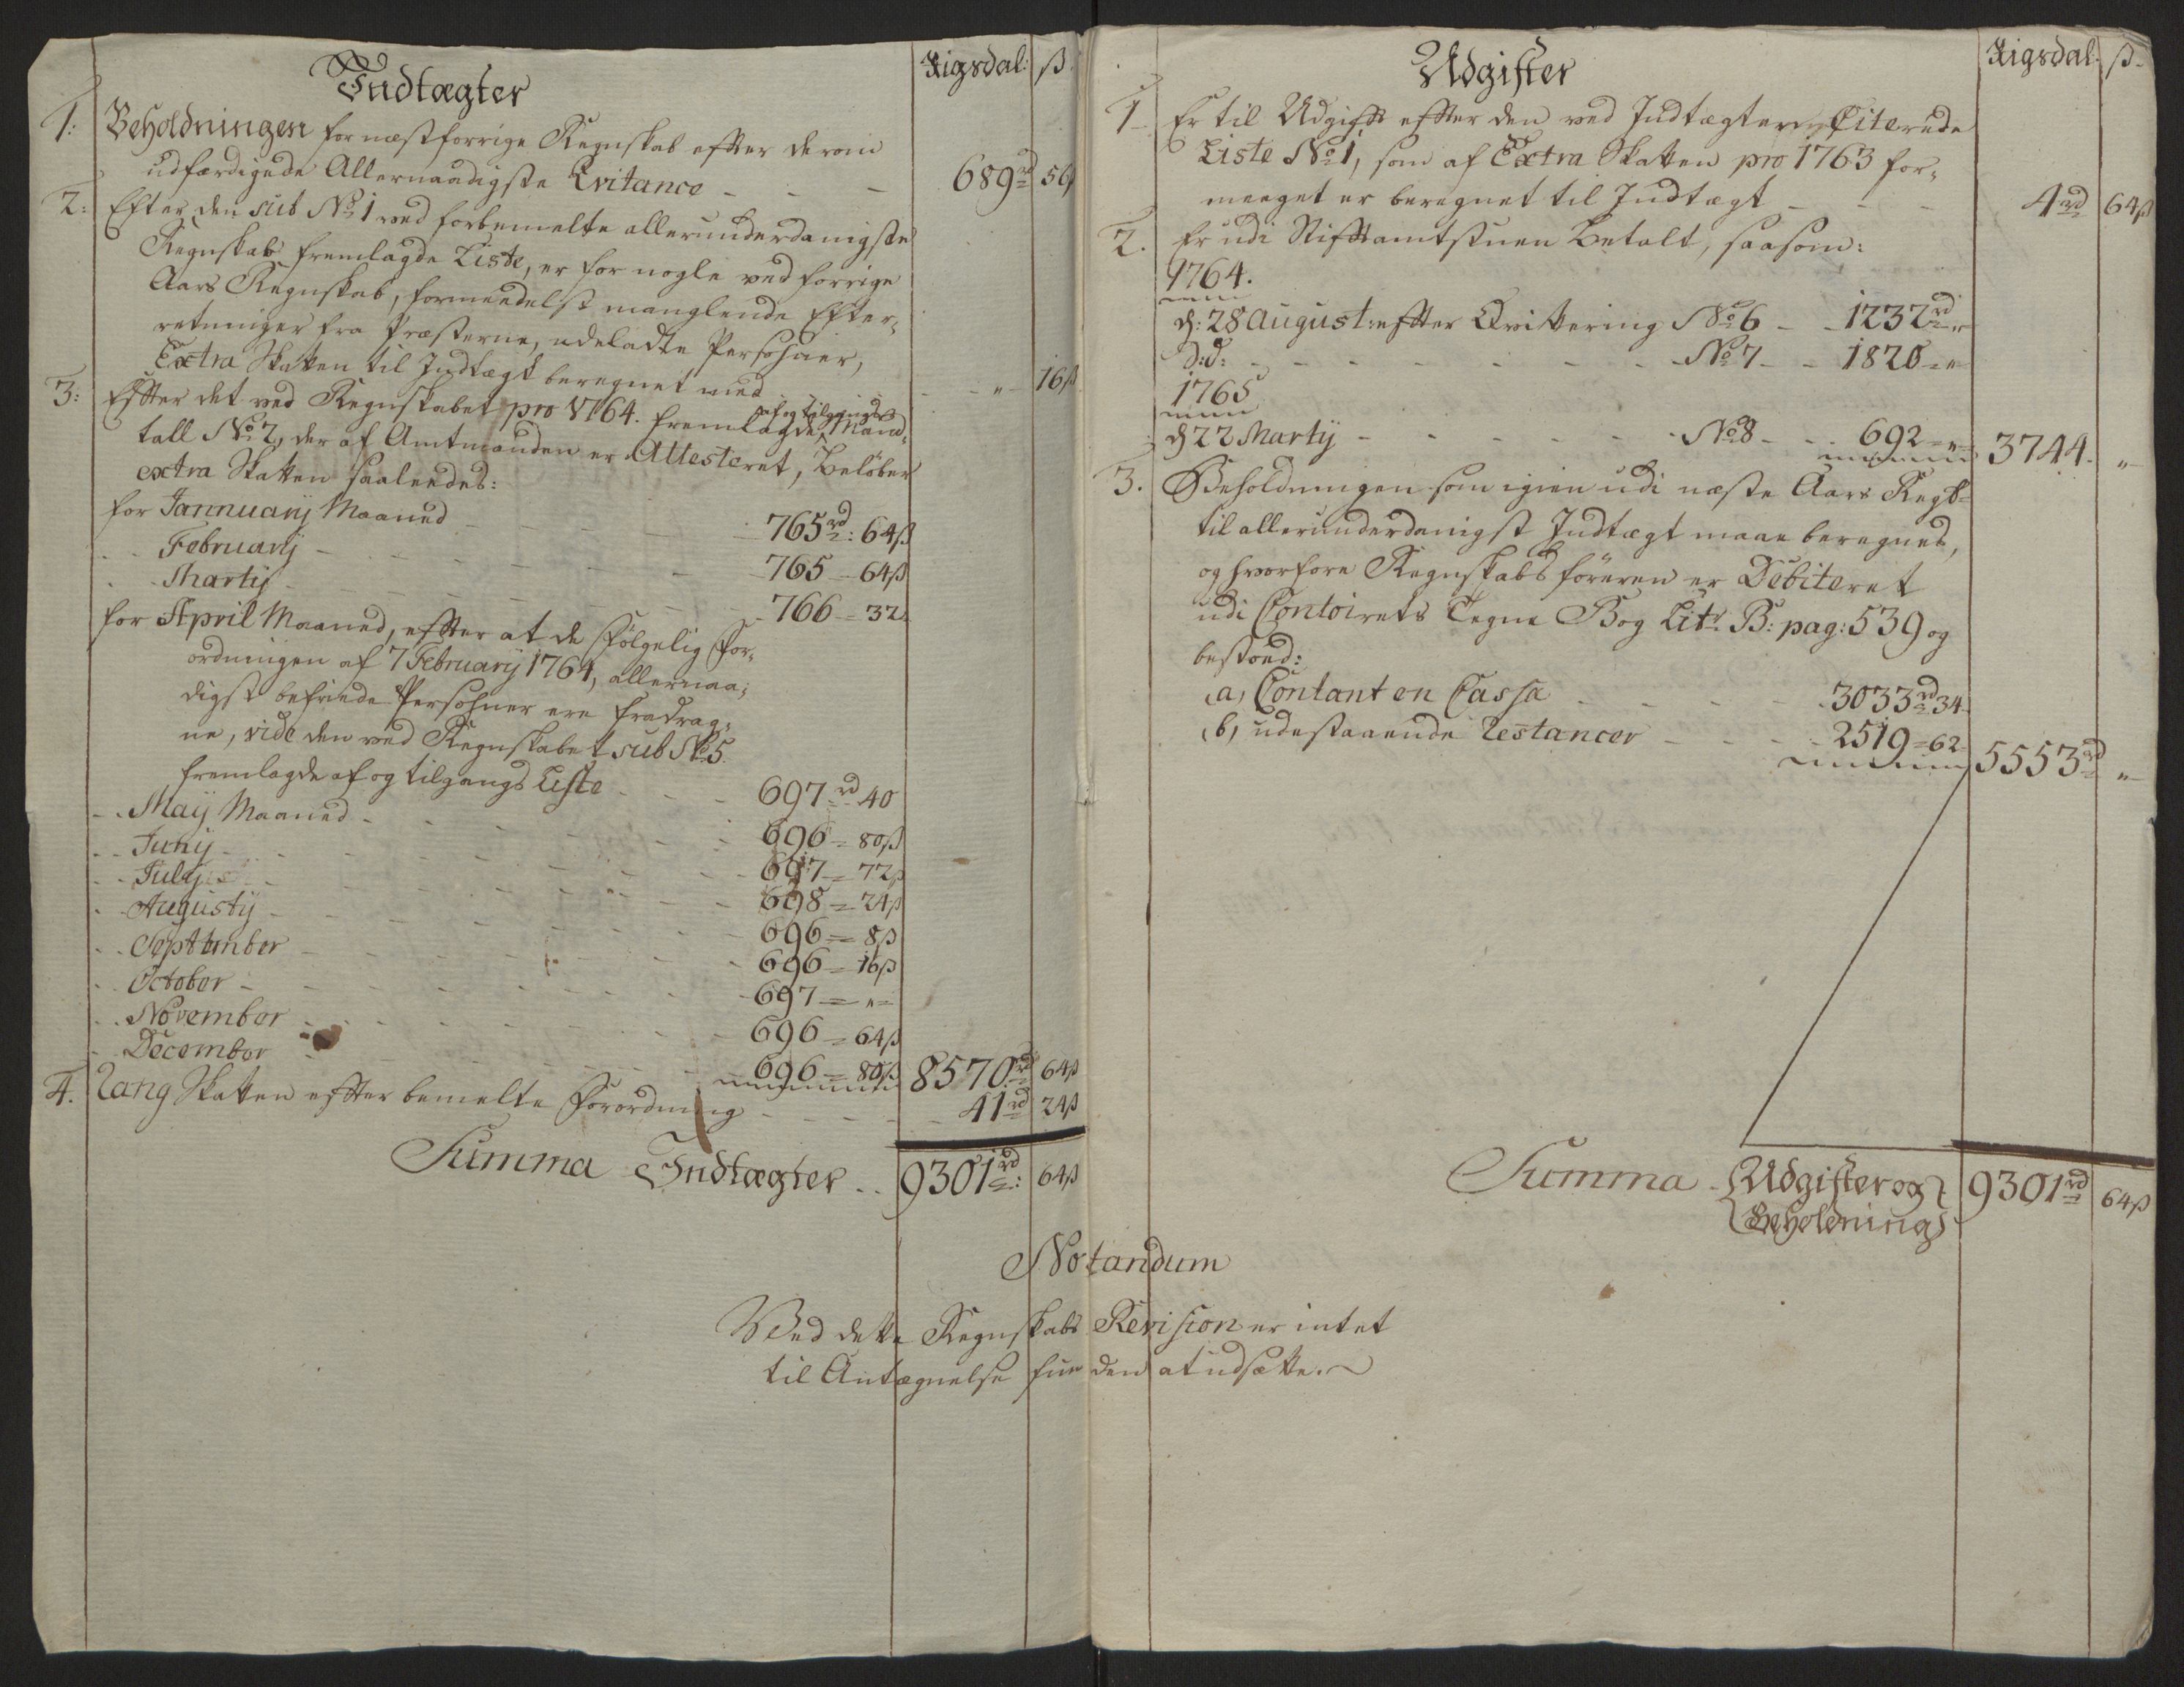 Indtægter
Rigsdal: ß
1: Beholdningen for næstforrige Regnskab effter derom
udfærdigede Allernaadigste Qvitance - - - 689rd 56ß
2: Efter den sub No 1 ved forbemelte allerunderdanigste
Regnskab fremlagde Liste, er for nogle ved forrige
Aars Regnskab, formedelst manglende Efter-
retninger fra Præsterne, udeladte Persohner,
Extra Skatten til Indtægt beregnet med - - „ 16ß
af og tilgangs
3: Effter det ved Regnskabet pro 1764. fremlagde Mand-
tall No 2, der af Amtmanden er Attesteret, beløber
extra Skatten saaledes:
for Jannuarij Maaned - - - 765rd: 64ß
- - Februarij - - - 765 - 64ß
- - Martij - - - 766 = 32
for April Maaned, effter at de følgelig For-
ordningen af 7 Februarij 1764, allernaa-
digst befriede Persohner ere fradrag-
ne, vide den ved Regnskabet sub No 5
fremlagde af og tilgangs Liste - - - 697rd 40
- - Maij Maaned - - - 696 = 80ß
- - Junij - - - 697 = 72ß
- - Julij - - - 698 = 24ß
- - Augustij - - - 696 = 8ß
- - September - - - 696 = 16ß
- - October - - - 697 = „
- - November - - - 696 = 64ß
- - December - - - 696 = 80ß 8570rd 64ß
4. Rang Skatten effter bemelte Forordning - - - 41rd 24ß
Summa Indtægter - - 9301rd: 64ß
Udgifter
Rigsdal: ß
1 Er til Udgift effter den ved Indtægten Citerede
Liste No 1, som af Extra Skatten pro 1763 for-
meeget er beregnet til Indtægt - - - 4rd 64ß
2. Er udi Stifftamtstuen betalt, saasom:
1764.
d: 28 August: effter Qvittering No 6 - - 1232rd „
d: d: - - - No 7 - - 1820 = „
1765
d 22 Martij - - - No 8 - - 692 = „ 3744. „
3. Beholdningen som igien udi næste Aars Regsk-
til allerunderdanigst Indtægt maae beregnes,
og hvorfore Regnskabsføreren er Debiteret
udi Contoirets Tegne Bog Litr B: pag: 539 og
bestaaed:
a, Contant en Cassa - - - 3033rd 34
b, udestaaende Restancer - - - 2519 = 62 5553rd „
Summa - Udgifter og
Beholdning 9301rd 64ß
Notandum
Ved dette Regnskabs Revision er intet
til Antegnelse funden at udsætte.